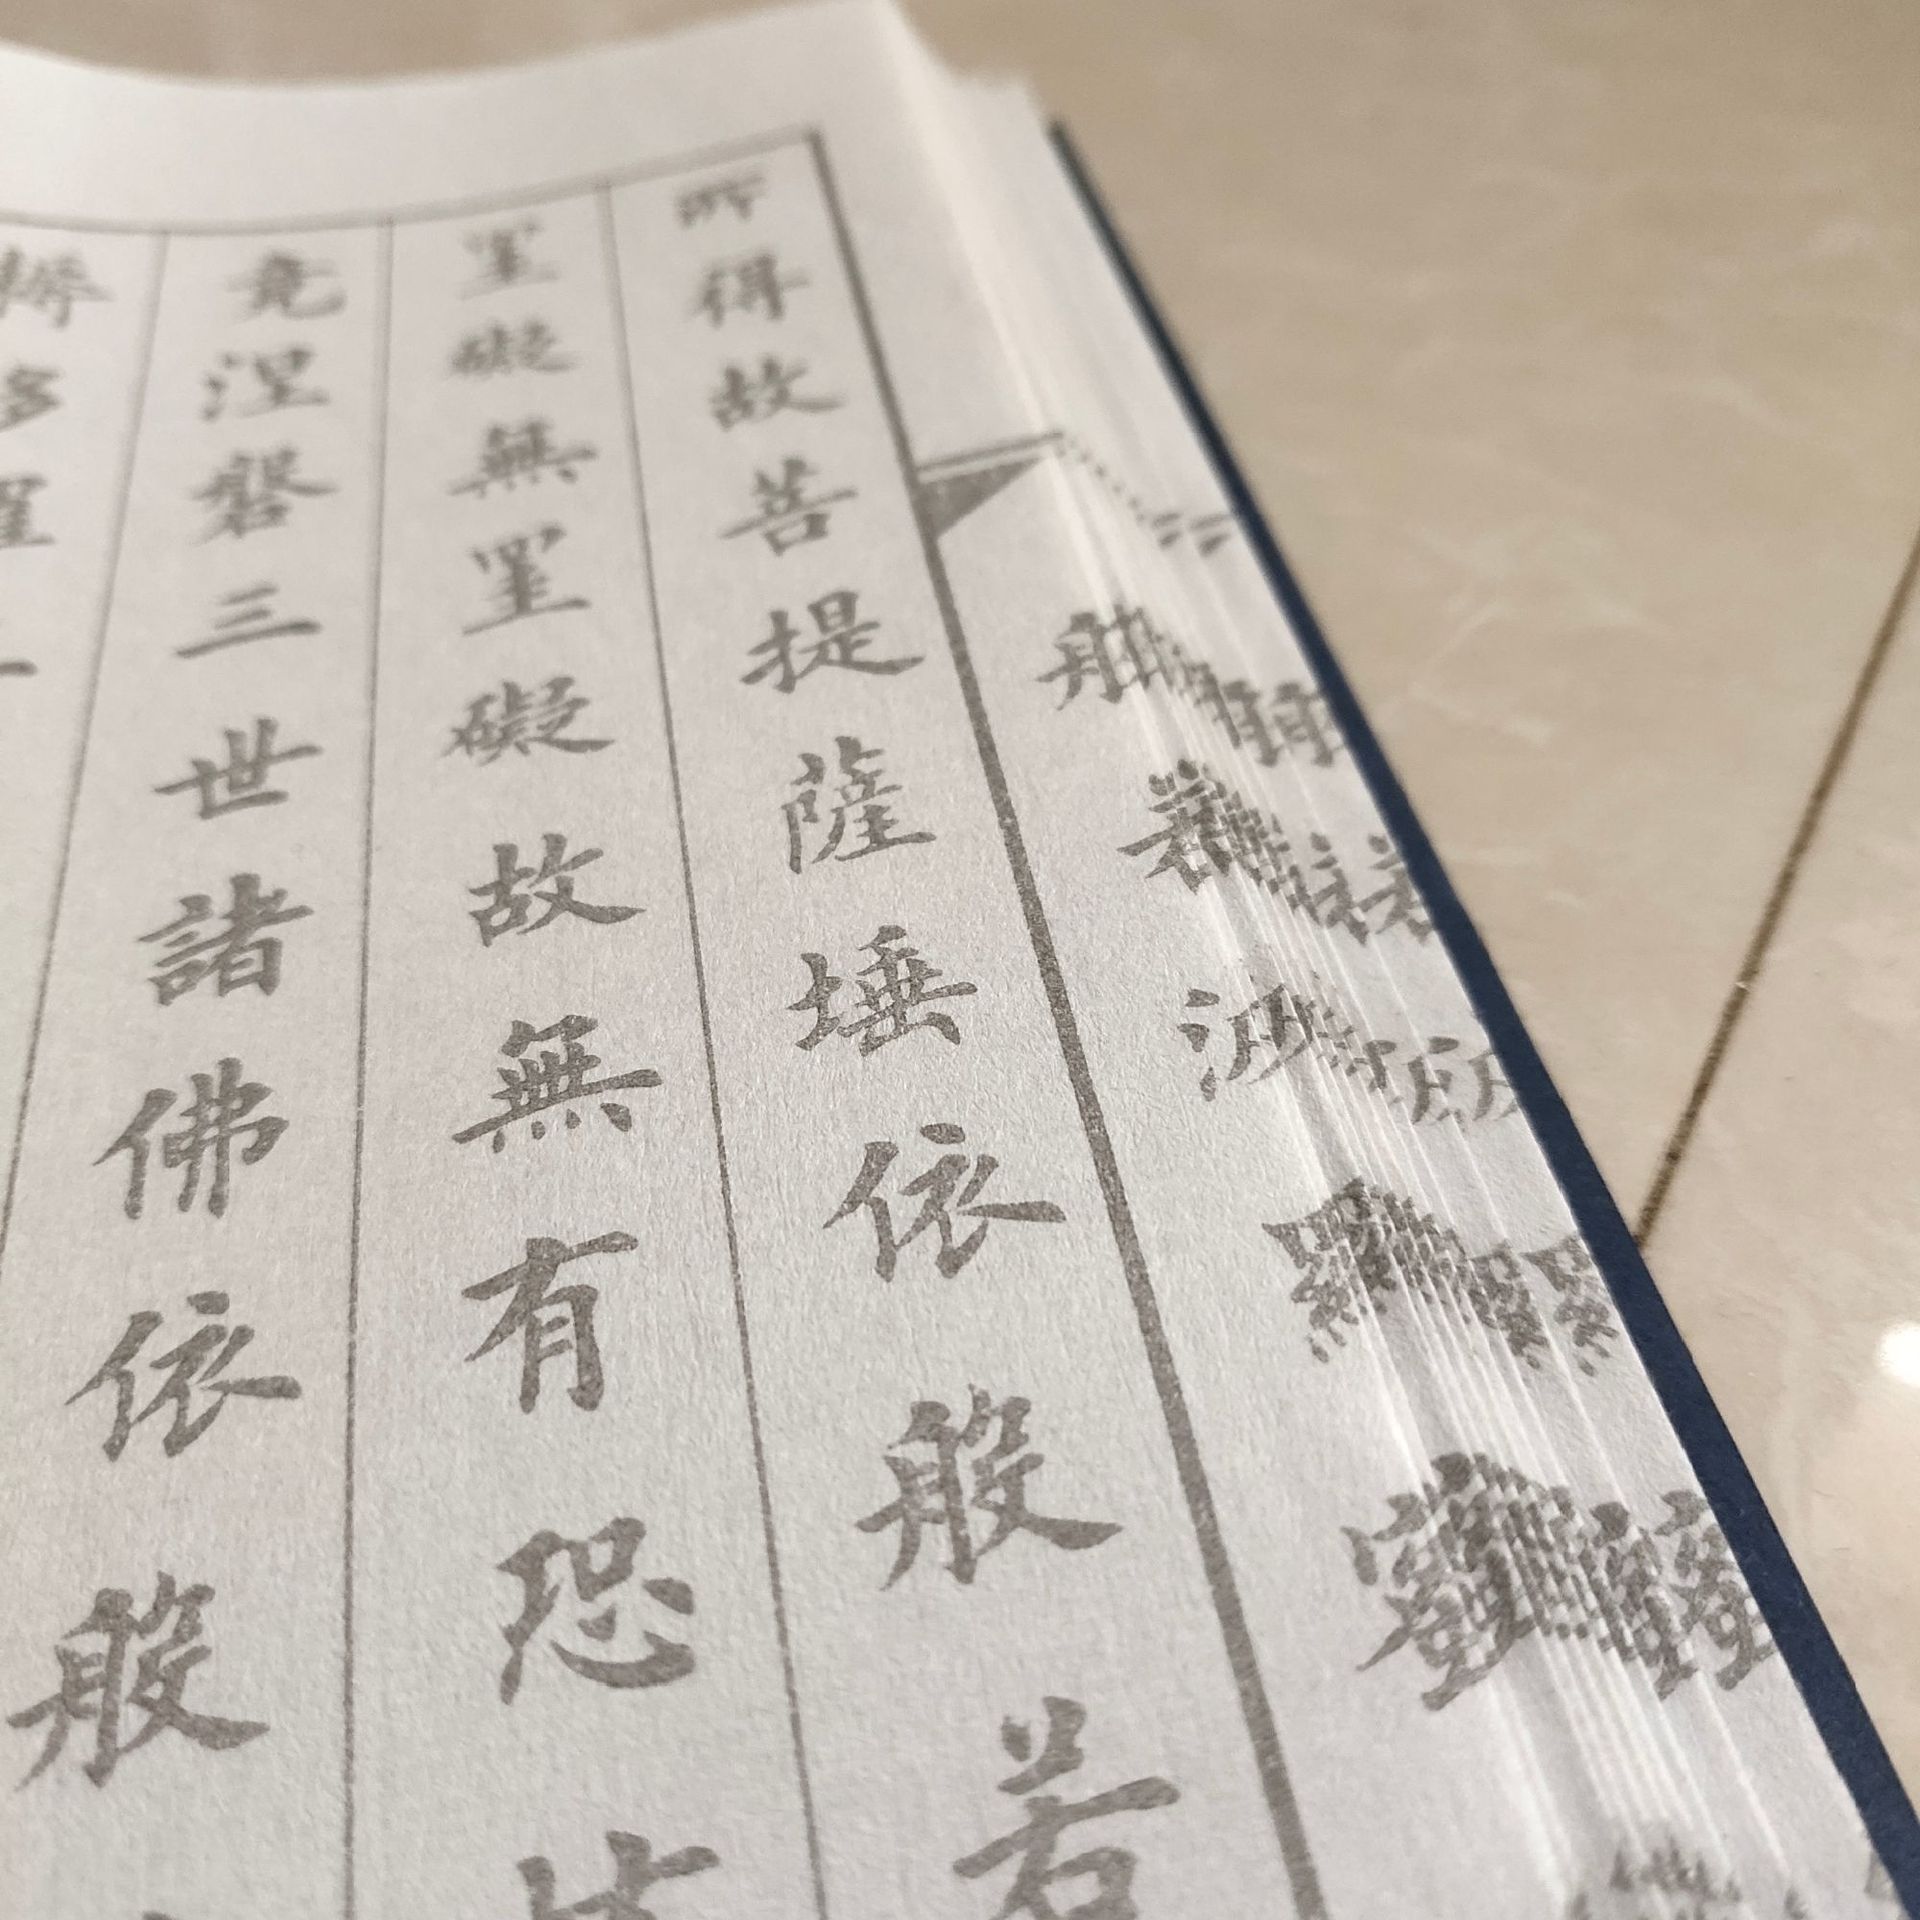 所得故菩提薩埵依般若
罣礙無罣礙故無有恐
竟涅槃三世諸佛依般
耨多羅三
般若波羅蜜